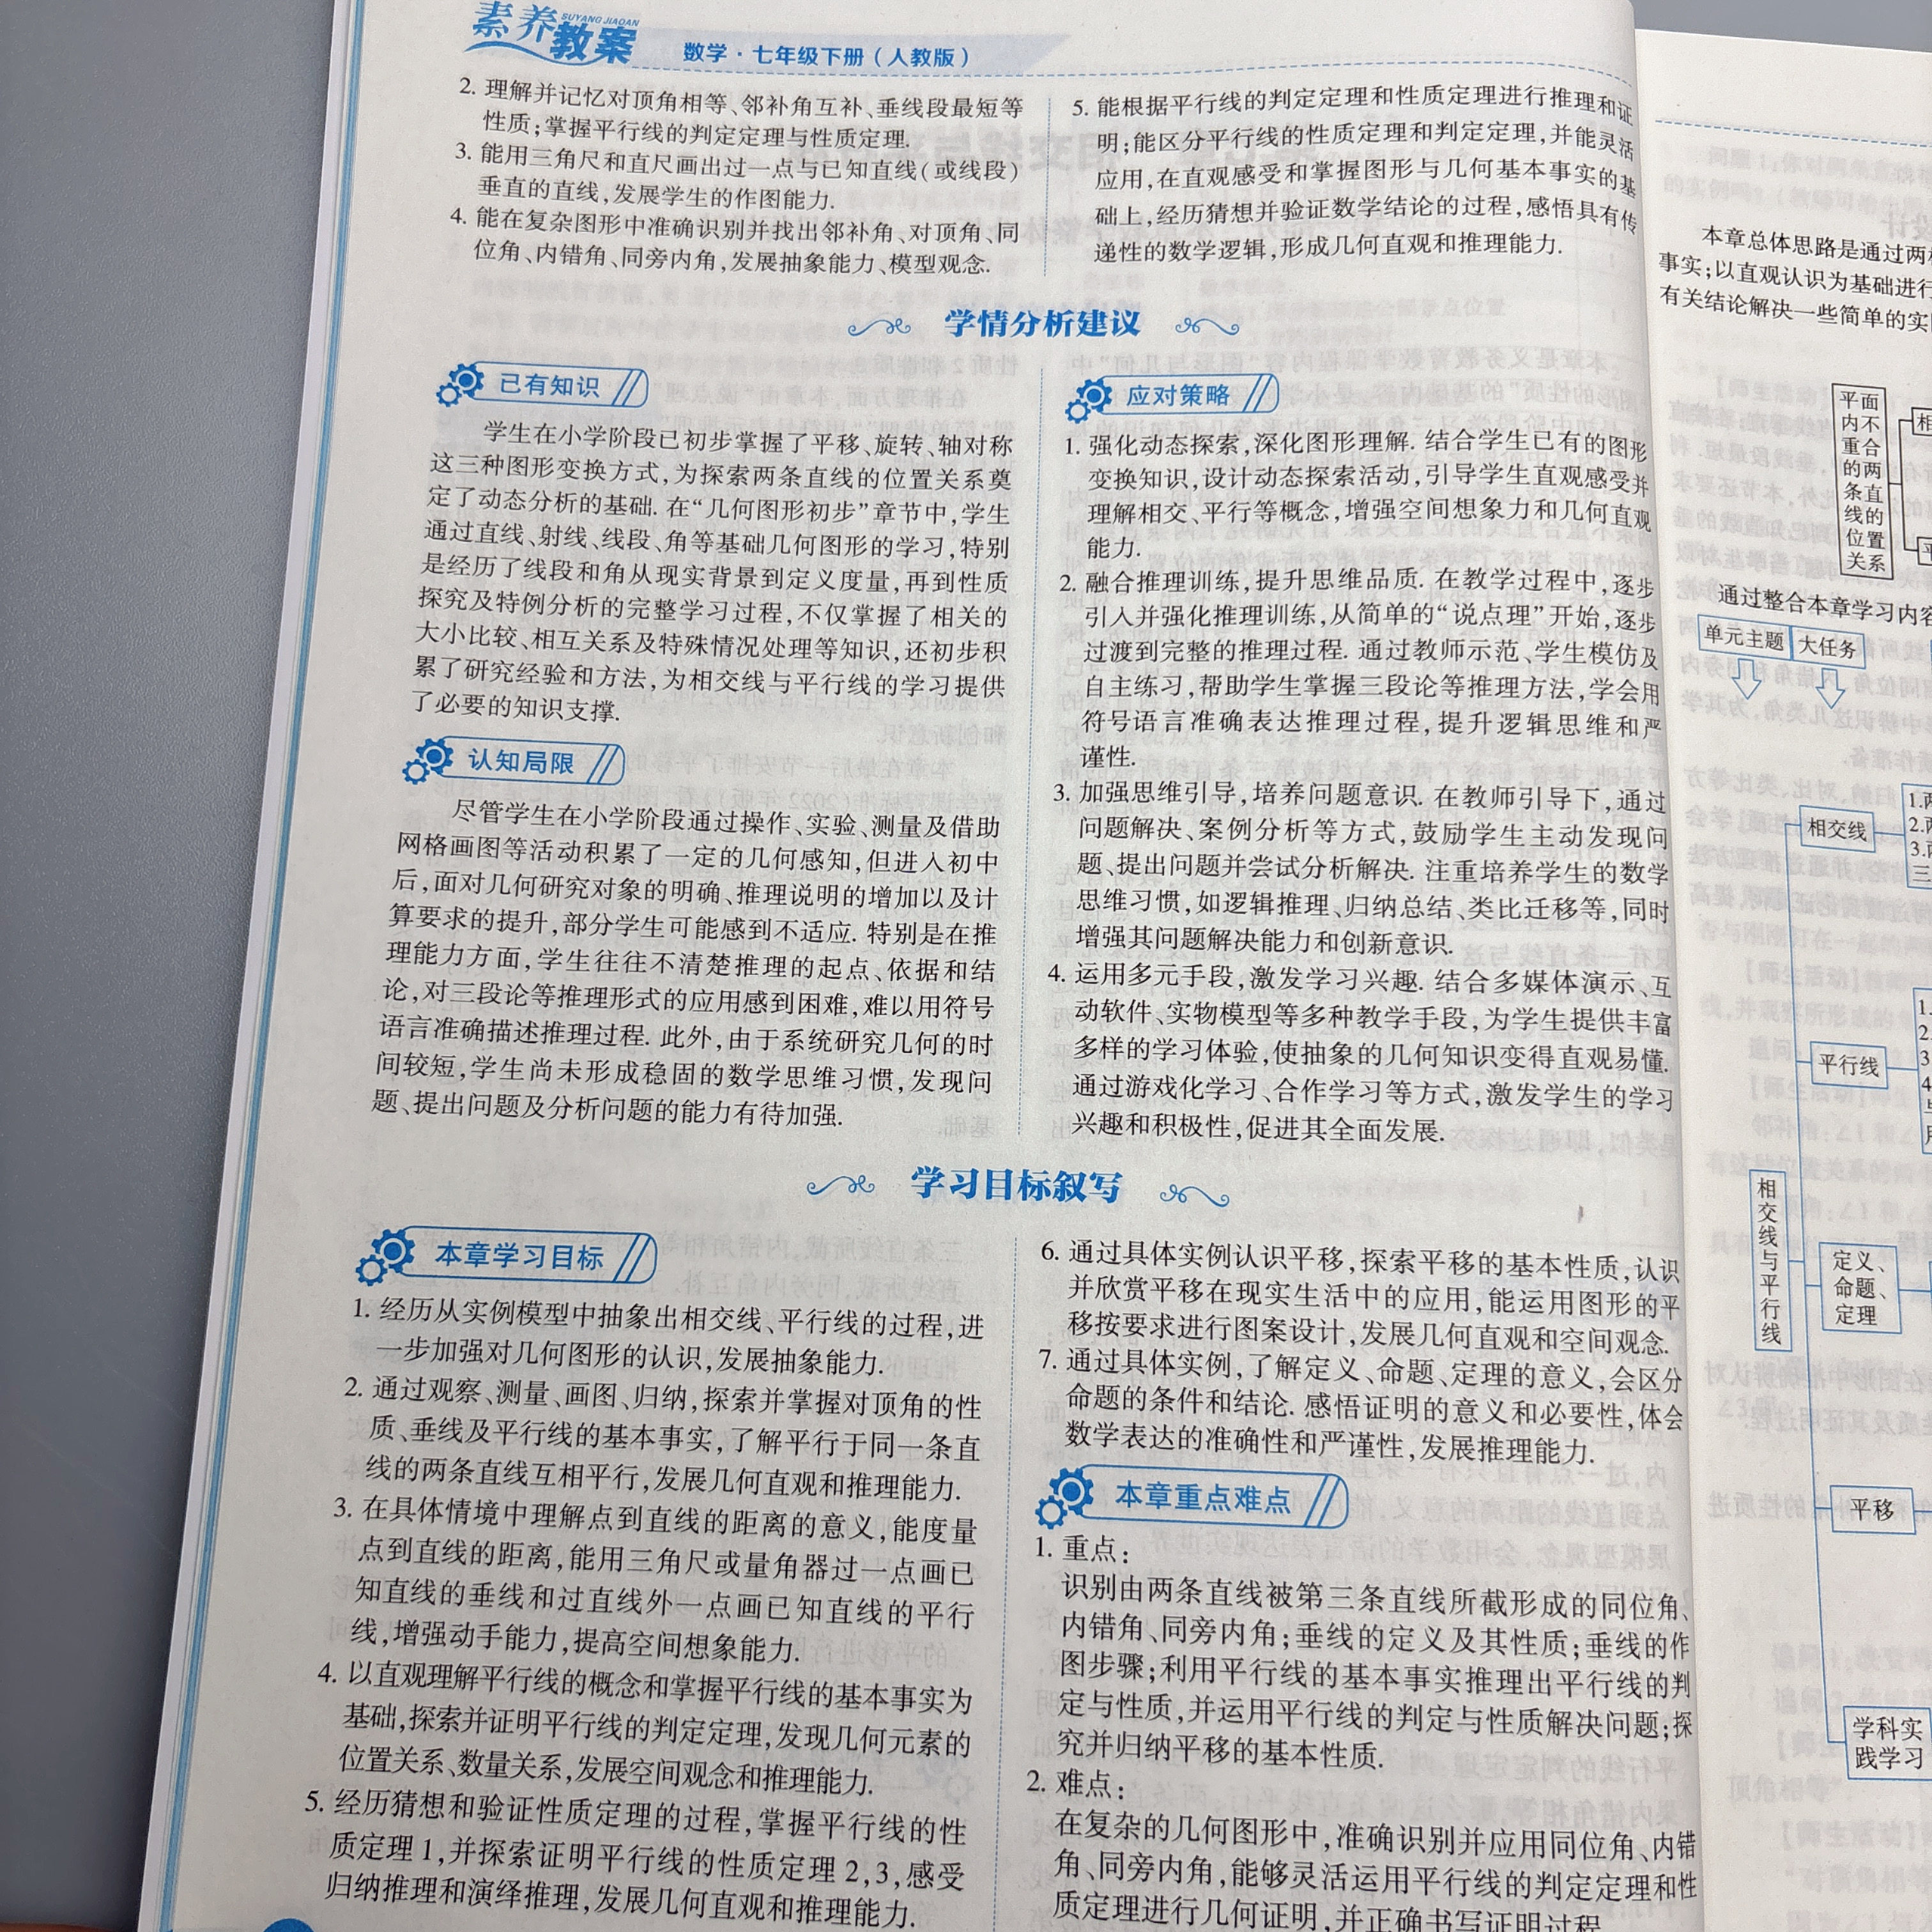 素养教案
SUYANG JIAOAN
数学·七年级下册(人教版)
2. 理解并记忆对顶角相等、邻补角互补、垂线段最短等
性质;掌握平行线的判定定理与性质定理.
3. 能用三角尺和直尺画出过一点与已知直线(或线段)
垂直的直线,发展学生的作图能力.
4. 能在复杂图形中准确识别并找出邻补角、对顶角、同
位角、内错角、同旁内角,发展抽象能力、模型观念.
5. 能根据平行线的判定定理和性质定理进行推理和证
明;能区分平行线的性质定理和判定定理,并能灵活
应用,在直观感受和掌握图形与几何基本事实的基
础上,经历猜想并验证数学结论的过程,感悟具有传
递性的数学逻辑,形成几何直观和推理能力.
学情分析建议
已有知识
学生在小学阶段已初步掌握了平移、旋转、轴对称
这三种图形变换方式,为探索两条直线的位置关系奠
定了动态分析的基础. 在“几何图形初步”章节中,学生
通过直线、射线、线段、角等基础几何图形的学习,特别
是经历了线段和角从现实背景到定义度量,再到性质
探究及特例分析的完整学习过程,不仅掌握了相关的
大小比较、相互关系及特殊情况处理等知识,还初步积
累了研究经验和方法,为相交线与平行线的学习提供
了必要的知识支撑.
认知局限
尽管学生在小学阶段通过操作、实验、测量及借助
网格画图等活动积累了一定的几何感知,但进入初中
后,面对几何研究对象的明确、推理说明的增加以及计
算要求的提升,部分学生可能感到不适应. 特别是在推
理能力方面,学生往往不清楚推理的起点、依据和结
论,对三段论等推理形式的应用感到困难,难以用符号
语言准确描述推理过程. 此外,由于系统研究几何的时
间较短,学生尚未形成稳固的数学思维习惯,发现问
题、提出问题及分析问题的能力有待加强.
应对策略
1. 强化动态探索,深化图形理解. 结合学生已有的图形
变换知识,设计动态探索活动,引导学生直观感受并
理解相交、平行等概念,增强空间想象力和几何直观
能力.
2. 融合推理训练,提升思维品质. 在教学过程中,逐步
引入并强化推理训练,从简单的“说点理”开始,逐步
过渡到完整的推理过程. 通过教师示范、学生模仿及
自主练习,帮助学生掌握三段论等推理方法,学会用
符号语言准确表达推理过程,提升逻辑思维和严
谨性.
3. 加强思维引导,培养问题意识. 在教师引导下,通过
问题解决、案例分析等方式,鼓励学生主动发现问
题、提出问题并尝试分析解决. 注重培养学生的数学
思维习惯,如逻辑推理、归纳总结、类比迁移等,同时
增强其问题解决能力和创新意识.
4. 运用多元手段,激发学习兴趣. 结合多媒体演示、互
动软件、实物模型等多种教学手段,为学生提供丰富
多样的学习体验,使抽象的几何知识变得直观易懂.
通过游戏化学习、合作学习等方式,激发学生的学习
兴趣和积极性,促进其全面发展.
学习目标叙写
本章学习目标
1. 经历从实例模型中抽象出相交线、平行线的过程,进
一步加强对几何图形的认识,发展抽象能力.
2. 通过观察、测量、画图、归纳,探索并掌握对顶角的性
质、垂线及平行线的基本事实,了解平行于同一条直
线的两条直线互相平行,发展几何直观和推理能力.
3. 在具体情境中理解点到直线的距离的意义,能度量
点到直线的距离,能用三角尺或量角器过一点画已
知直线的垂线和过直线外一点画已知直线的平行
线,增强动手能力,提高空间想象能力.
4. 以直观理解平行线的概念和掌握平行线的基本事实为
基础,探索并证明平行线的判定定理,发现几何元素的
位置关系、数量关系,发展空间观念和推理能力.
5. 经历猜想和验证性质定理的过程,掌握平行线的性
质定理1,并探索证明平行线的性质定理2,3,感受
归纳推理和演绎推理,发展几何直观和推理能力.
6. 通过具体实例认识平移,探索平移的基本性质,认识
并欣赏平移在现实生活中的应用,能运用图形的平
移按要求进行图案设计,发展几何直观和空间观念.
7. 通过具体实例,了解定义、命题、定理的意义,会区分
命题的条件和结论. 感悟证明的意义和必要性,体会
数学表达的准确性和严谨性,发展推理能力.
本章重点难点
1. 重点:
识别由两条直线被第三条直线所截形成的同位角、
内错角、同旁内角;垂线的定义及其性质;垂线的作
图步骤;利用平行线的基本事实推理出平行线的判
定与性质,并运用平行线的判定与性质解决问题;探
究并归纳平移的基本性质.
2. 难点:
在复杂的几何图形中,准确识别并应用同位角、内错
角、同旁内角,能够灵活运用平行线的判定定理和性
质定理进行几何证明,并正确书写证明过程
本章总体思路是通过两
事实;以直观认识为基础进行
有关结论解决一些简单的实
平面
内不
重合
的两
条直
线的
位置
关系
相
平
通过整合本章学习内容
单元主题
大任务
相交线
1.
2.
3.
三
平行线
1.
2.
3
4
相交线与平行线
定义、
命题、
定理
平移
学科实
践学习